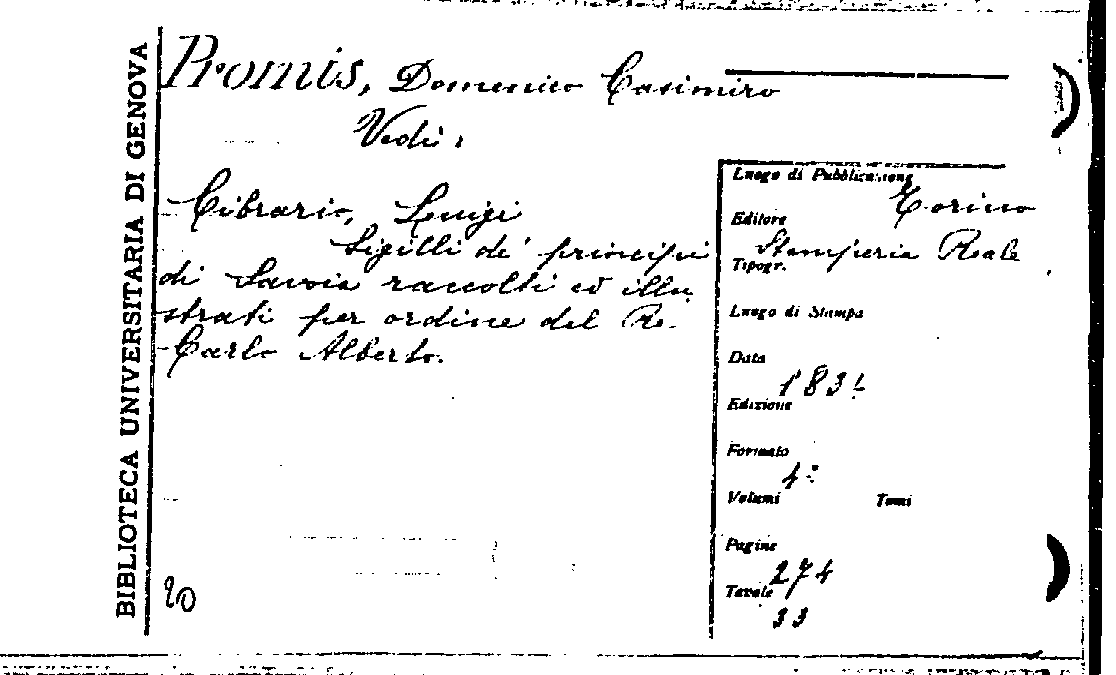 BIBLIOTECA UNIVERSITARIA DI GENOVA
Promis, Domenico Casimiro
Vedi:
Cibrario, Luigi
Sigilli de' principi
di Savoia raccolti ed illu
strati per ordine del Re
Carlo Alberto.
20
Luogo di Pubblicazione
Torino
Editore
Stamperia Reale
Tipogr.
Luogo di Stampa
Data
1834
Edizione
Formato
4º
Volumi Tomi
Pagine
274
Tavole
33